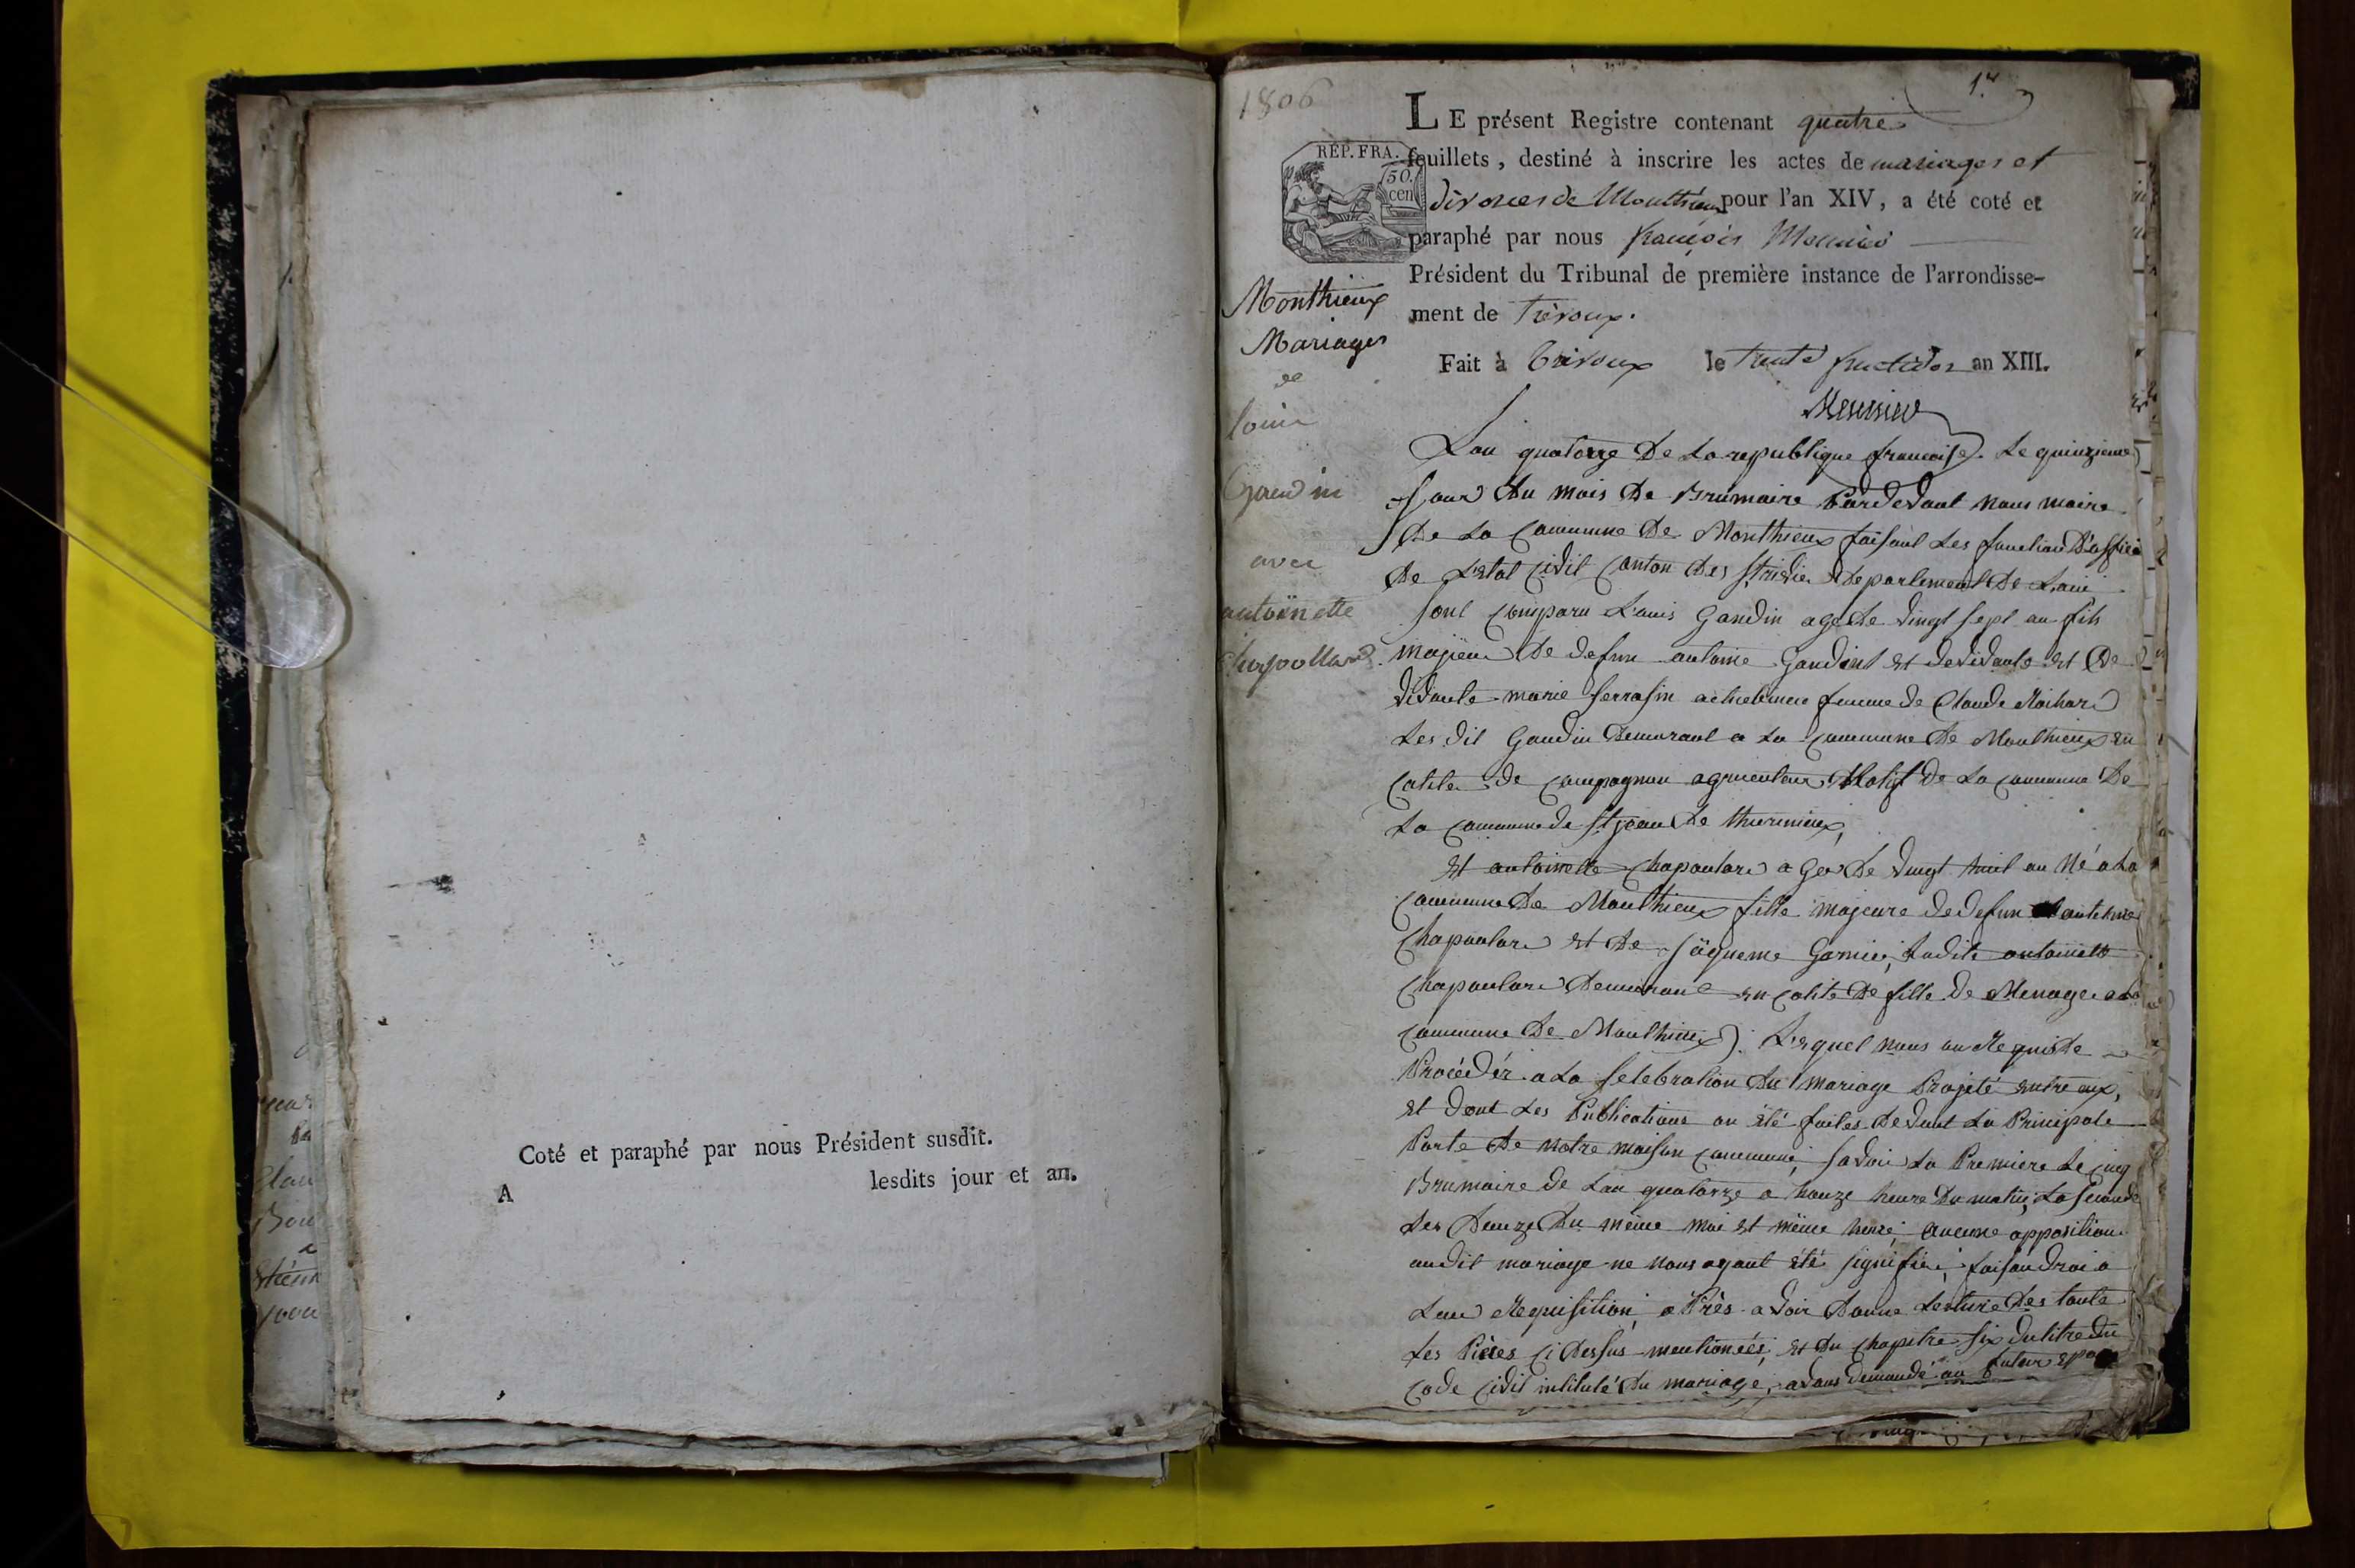 Coté et paraphé par nous Président susdit.
A lesdits jour et an.
1806
1.er
LE présent Registre contenant quatre
feuillets, destiné à inscrire les actes de mariages et
divorces de Monthieux pour l'an XIV, a été coté et
paraphé par nous françois
Président du Tribunal de première instance de l'arrondisse-
ment de Trévoux.
Fait à Trévoux le trente fructidor an XIII.
RÉP. FRA.
50.
cen
Monthieux
Mariages
de
louis
Gandin
avec
antoinette
chapollard
Lan quatorze De La republique francoise. Le quinzieme
Jour Du mois De Brumaire Pardevant nous maire
De La Commune De Monthieux faisant Les fonction D'officie
De L'etat Civil Canton Des St trivier Departement De L'ain
sont comparu Louis Gandin age De vingt sept an fils
majeur De defun antoine Gandint et devivante et De
vivante marie serrasin actuelmen femme de Claude
Les dit Gandin Demurant a La Commune De Monthieux en
calite De compagnon agriculteur Natif De La commune De
La commune de St jean De thurinieux,
Et antoinette Chapoulard a Gee De vingt huit an Né a La
commune De Monthieux fille majeure De defun antoinne
Chapoulard et De Jâqueme Garnier, Ladite antoinette
Chapoulard Demurant en calite De fille De Menage a La
commune De Monthieux). Lesquel nous on Requis De
Procédér a La selebration Du mariage Projeté entre eux,
et dont Les Publications on été faites Devant La Principale
Porte De notre maison commune, savoir La Premiere Le cinq
Brumaire De Lan quatorze a honze heure Du matin, La seconde
Les Douze Du même moi et même heure, aucune opposition
audit mariage ne nous ayant été signifiée, faisan Droi a
Leur Requisition, a Près avoir Donne Lecture Des toute
Les Pièces Ci Dessus mentionées, et Du chapitre six Dutitre Du
code Civil intitulé Du mariage, avons Demandé au futur epoux